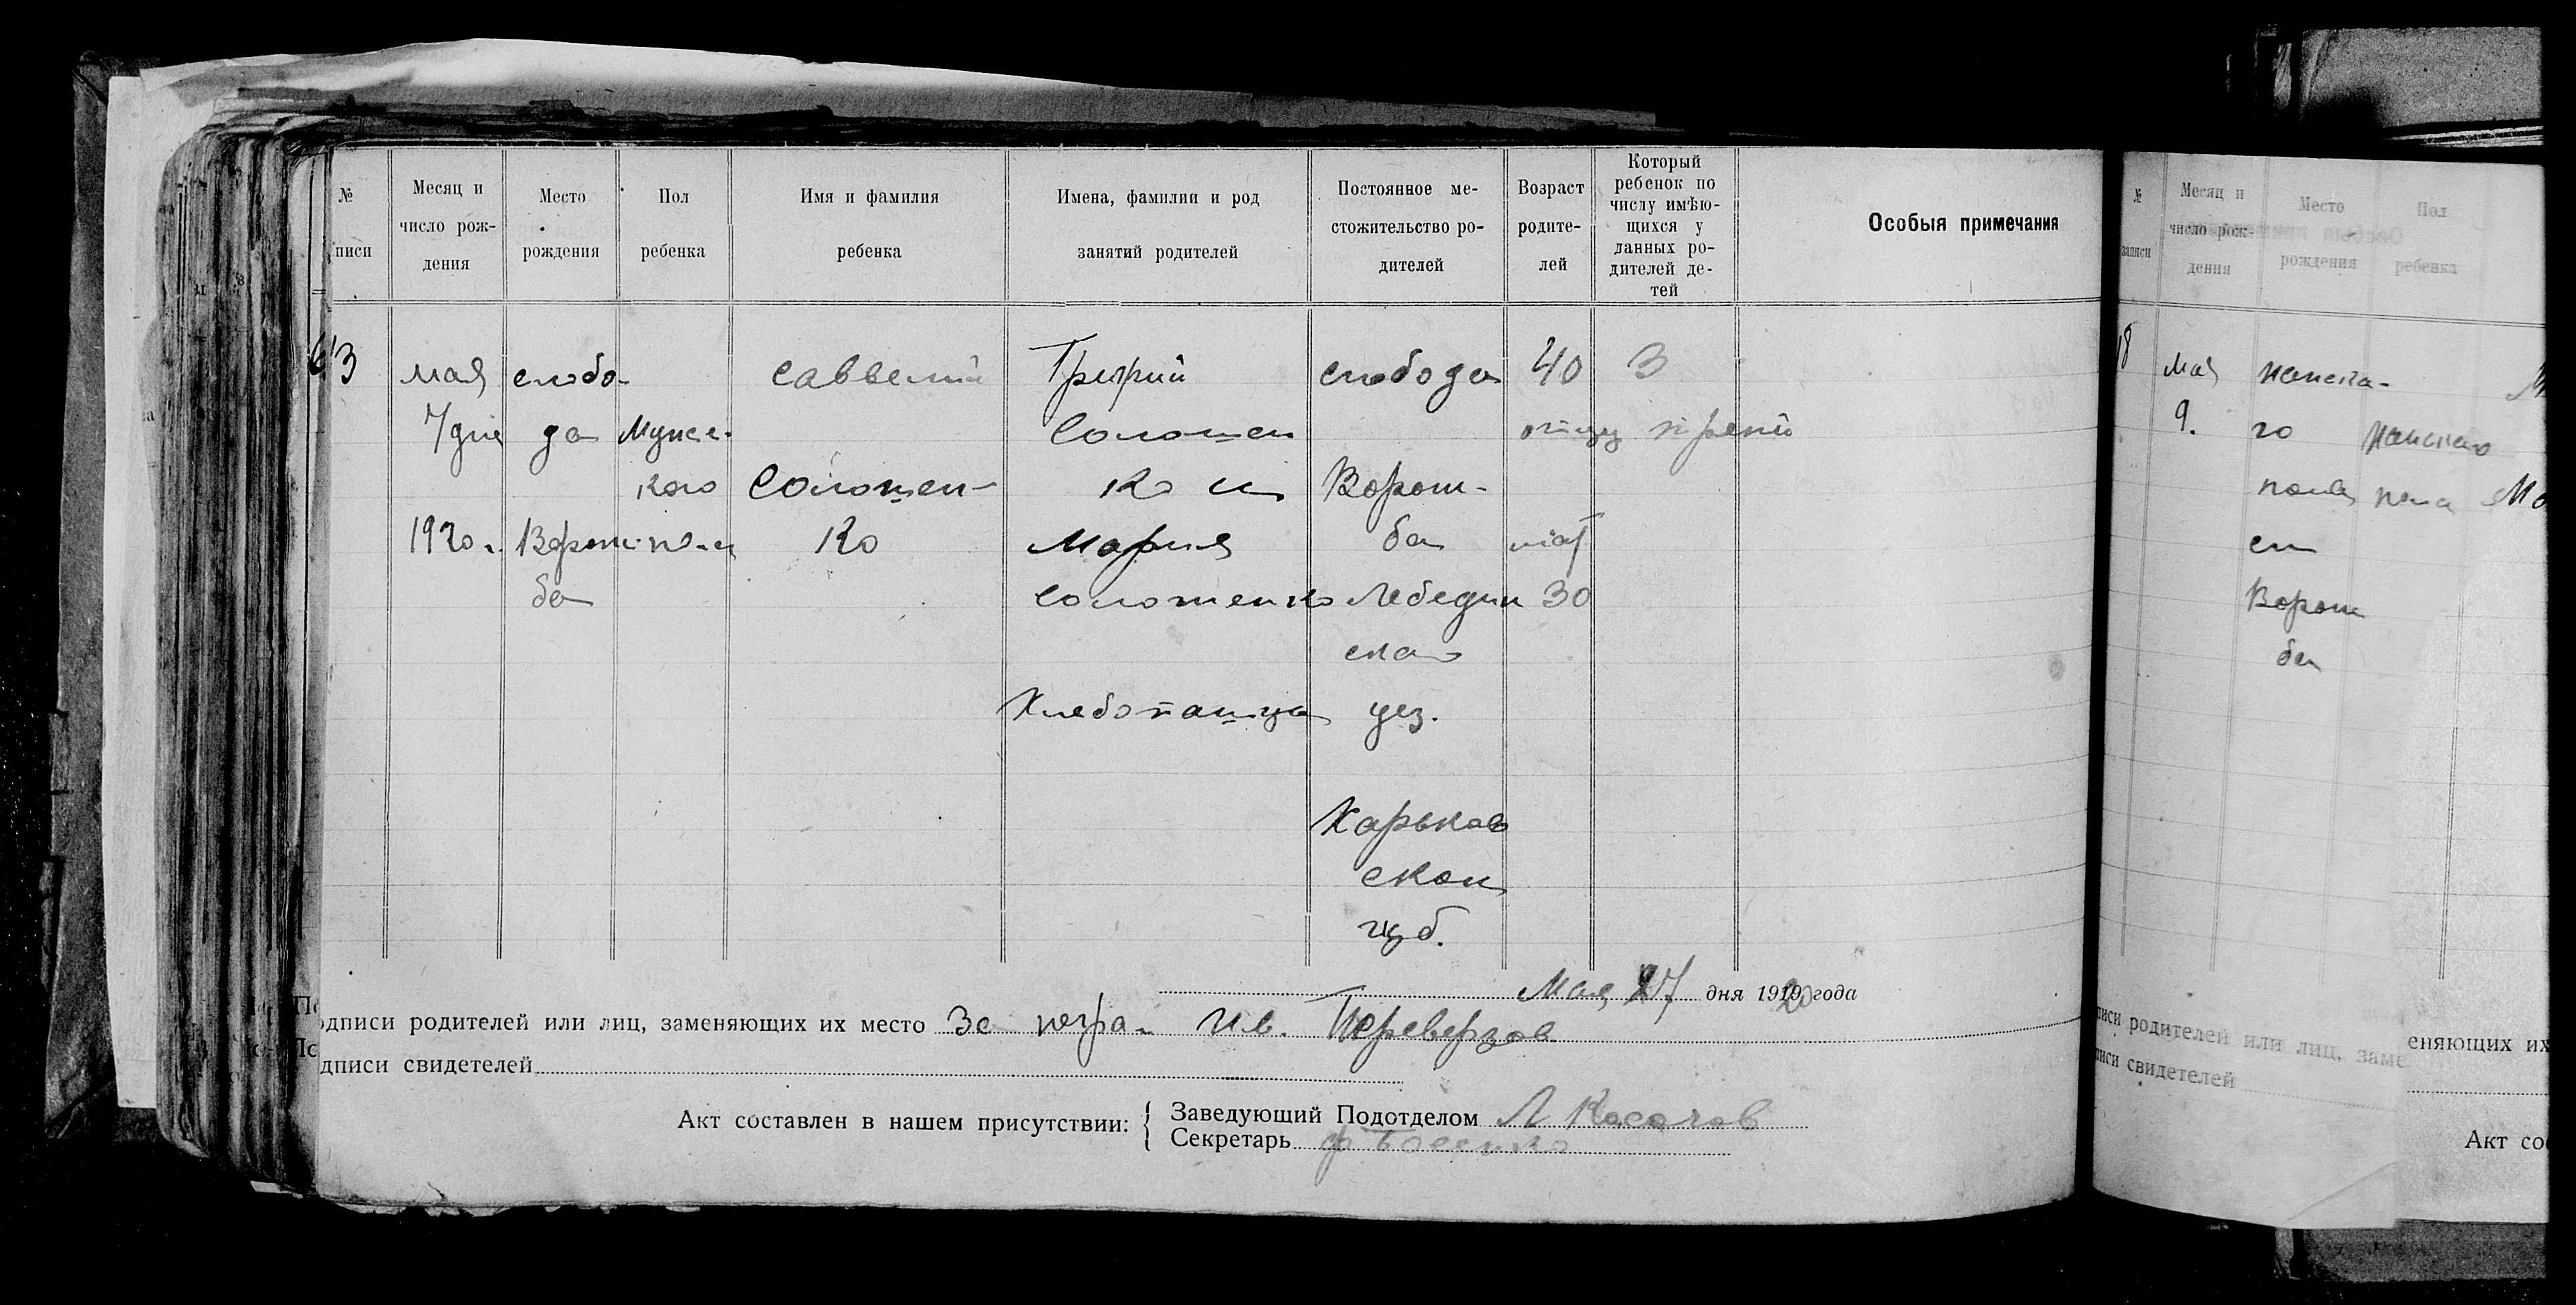 №
писи
Месяц и
число рож-
дения
Место
рождения
Пол
ребенка
Имя и фамилия
ребенка
Имена, фамилии и род
занятий родителей
Постоянное ме-
стожительство ро-
дителей
Возраст
родите-
лей
Который
ребенок по
числу имѣю-
щихся у
данных ро-
дителей де-
тей
Особыя примечания
63
мая
7 дня
1920 г.
слобо-
да
Ворож-
ба
Мужс-
кого
пола
Савелий
Солошен-
ко
Солошен
ко и
Мария
Солошенко
Хлебопашцы
слобода
Ворож-
ба
Лебедин
ского
уез.
Харьков
ской
губ.
40
отцу
мат
30
3
третий
Мая 27 дня 1920 года
одписи родителей или лиц, заменяющих их место За негра. Ив. Переверзов
дписи свидетелей
Акт составлен в нашем присутствии:
Заведующий Подотделом Л Косогов
Секретарь
№
записи
Месяц и
число рож-
дения
Место
рождения
Пол
ребенка
18
Мая
9.
женско-
го
пола
сл
Ворож
ба
женского
пола
писи родителей или лиц, заме
писи свидетелей
еняющих их
Акт со